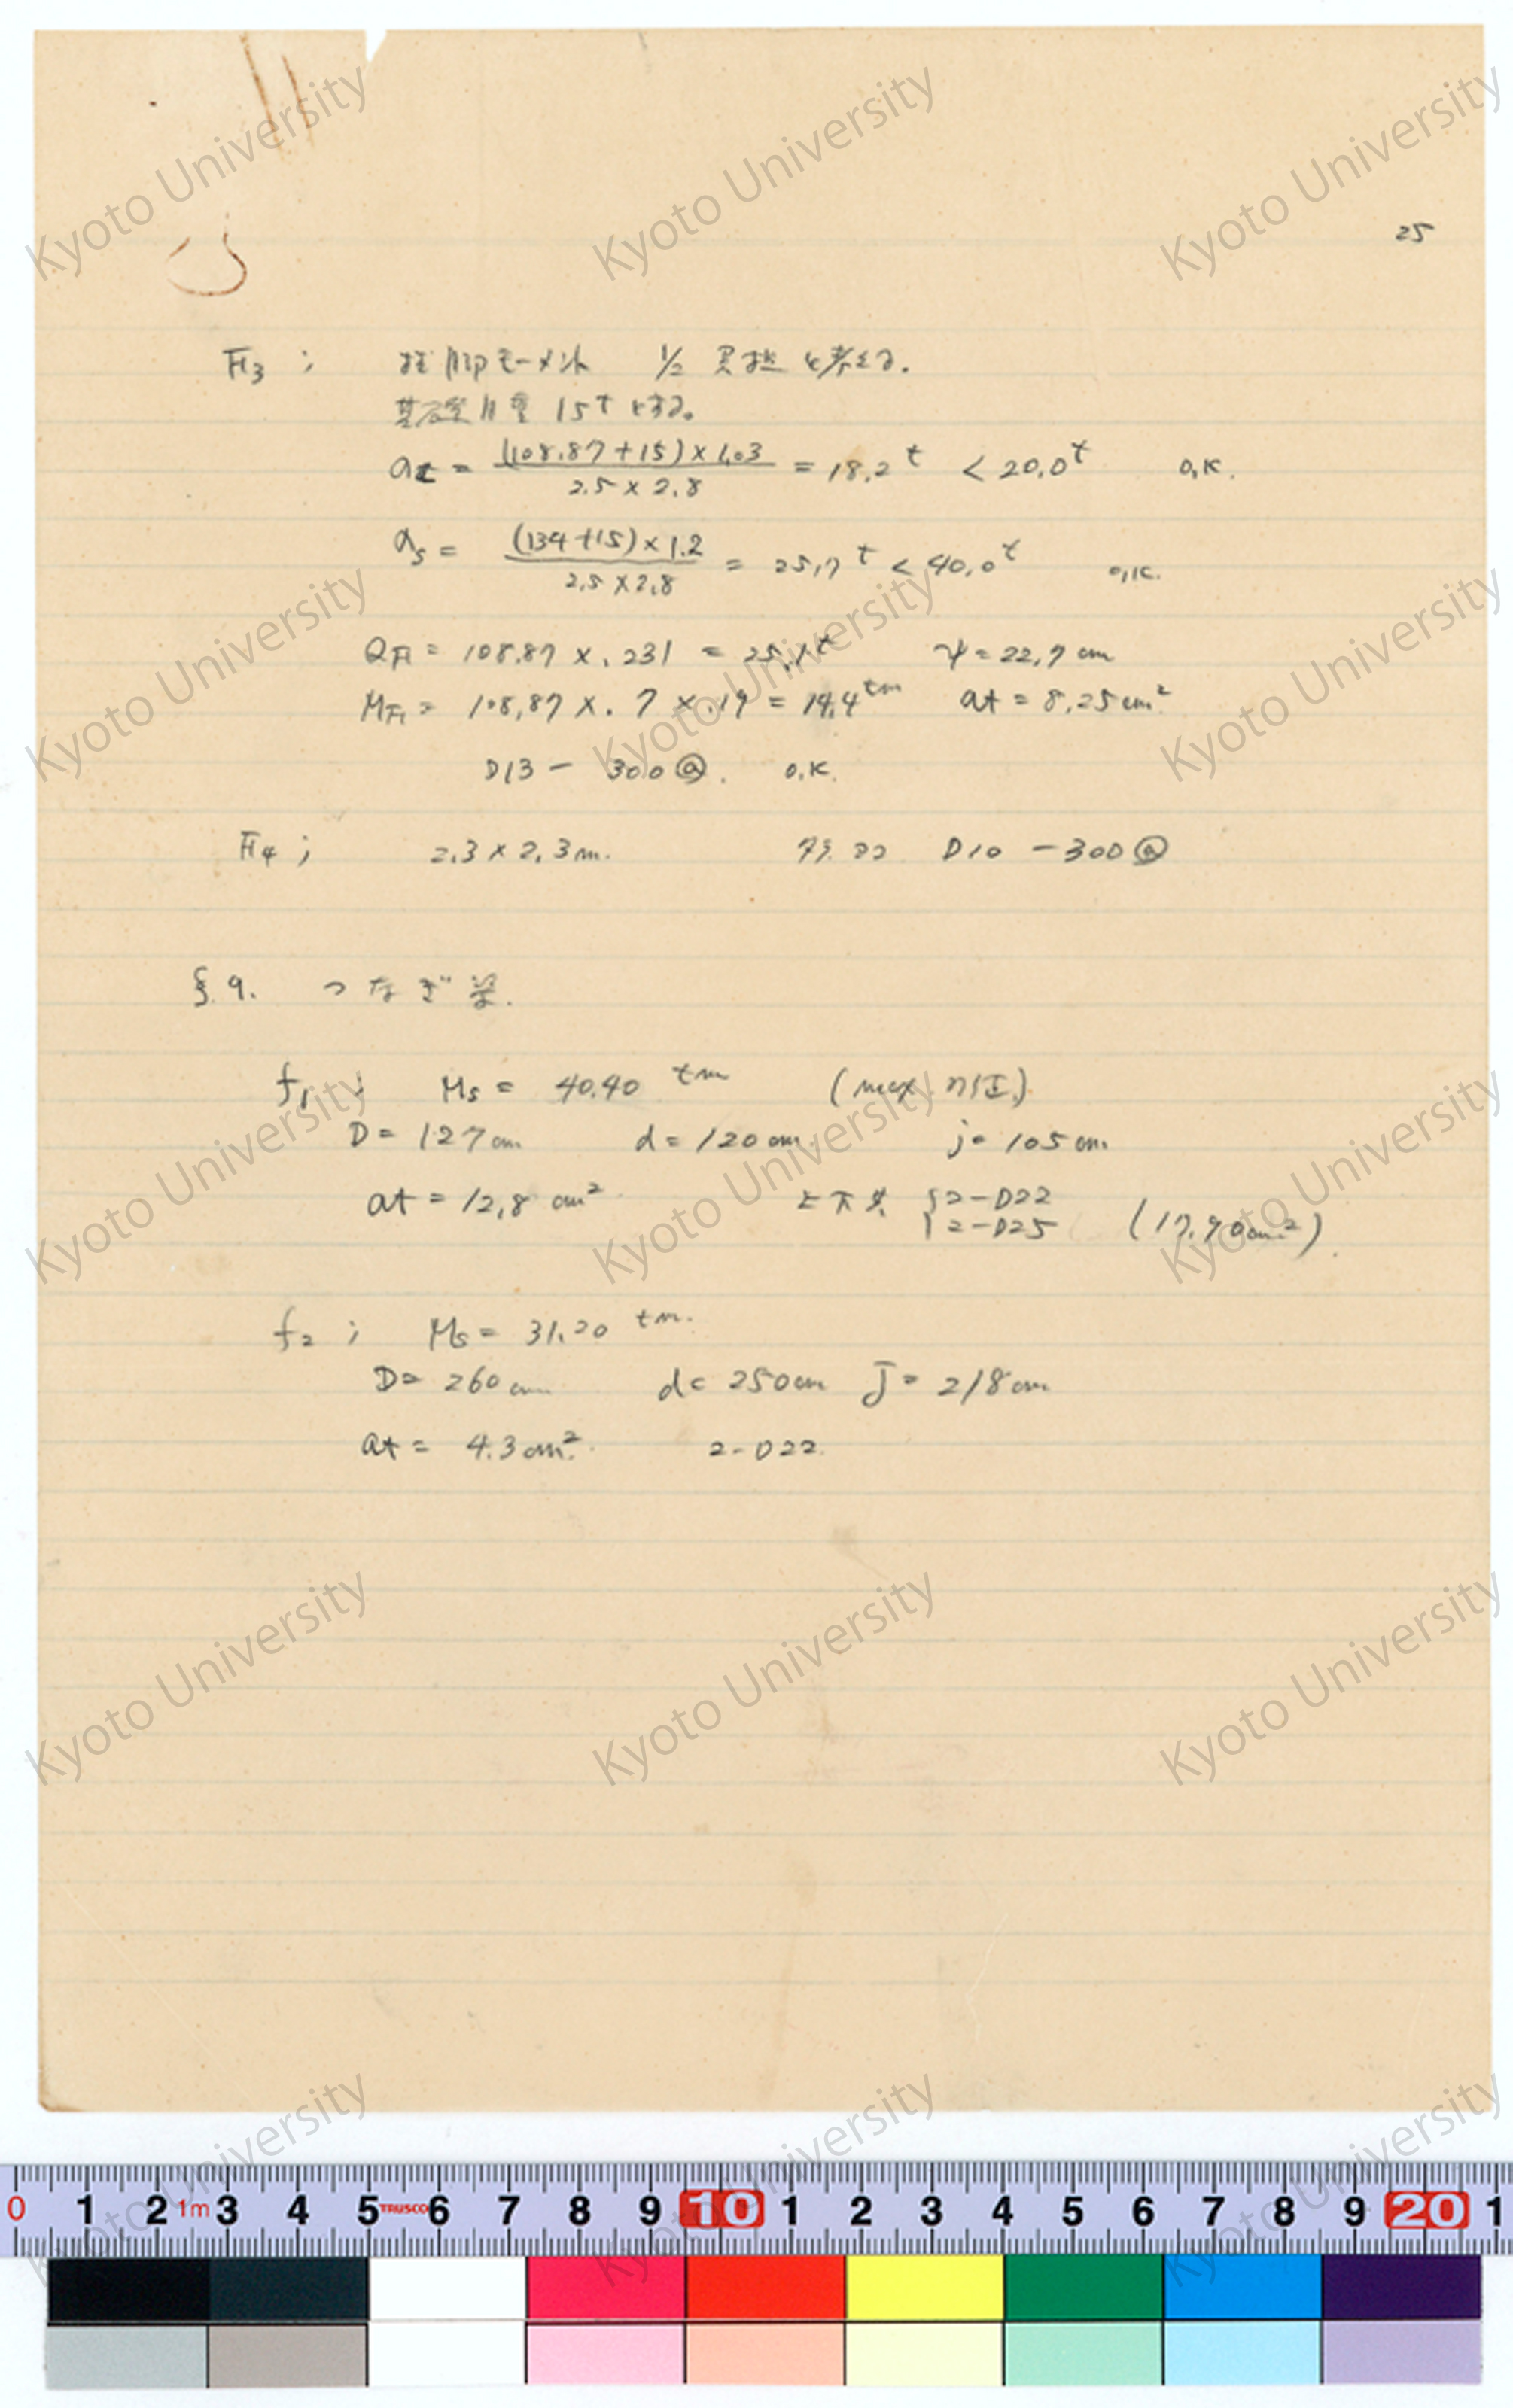 25
F3 ; 柱脚モーメント 1/2 負担と考える.
基礎自重 15t とする。
σL = (108.87+15)×1.03 / 2.5×2.8 = 18.2t < 20.0t O.K.
σs = (134+15)×1.2 / 2.5×2.8 = 25.7t < 40.0t O.K.
QF1 = 108.87 × .231 = 25.1t ψ = 22.7cm
MF1 = 108.87 × .7 × .19 = 14.4tm at = 8.25cm²
D13 - 300@. O.K.
F4 ; 2.3 × 2.3m. D10 - 300@
§9. つなぎ梁.
f1 ; Ms = 40.40 tm (max. )
D = 127cm d = 120cm. j = 105cm.
at = 12.8 cm² 上下共 { 2-D22
2-D25 (17.90cm²).
f2 ; Ms = 31.20 tm.
D = 260cm d = 250cm J = 218cm
at = 4.3cm². 2-D22.
Kyoto University
0 1 2 1m 3 4 5 TRUSCO 6 7 8 9 10 1 2 3 4 5 6 7 8 9 20 1